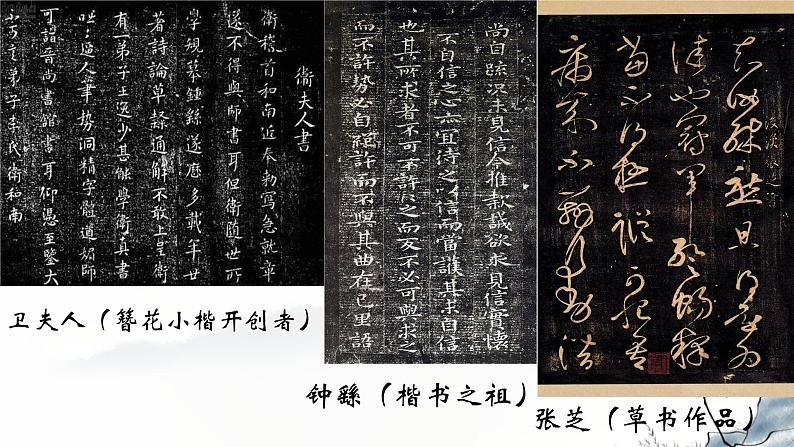 衛夫人書
衛稽首和南近奉勅寫急就章
遂不得與師書耳但衛隨世所
學規摹鍾繇遂歷多載年廿
著詩論草隸通解不敢上呈衛
有一弟子王逸少甚能學衛真書
咄咄逼人筆勢洞精字體遒媚師
可詣晉尚書館書耳仰憑至鑒大
不可言弟子李氏衛和南
卫夫人（簪花小楷开创者）
尚自疏況未見信今推款誠欲求見信實懷
不自信之心亦宜待之以信而當護其未自信
也其所求者不可不許許之而反不必可與求之
而不許勢必自絕許而不與其曲在己里語
钟繇（楷书之祖）
後漢張芝書
知汝殊愁且得還為
佳也冠軍暫暢釋
當不得極蹤可恨吾
病來不辨行動潛
张芝（草书作品）